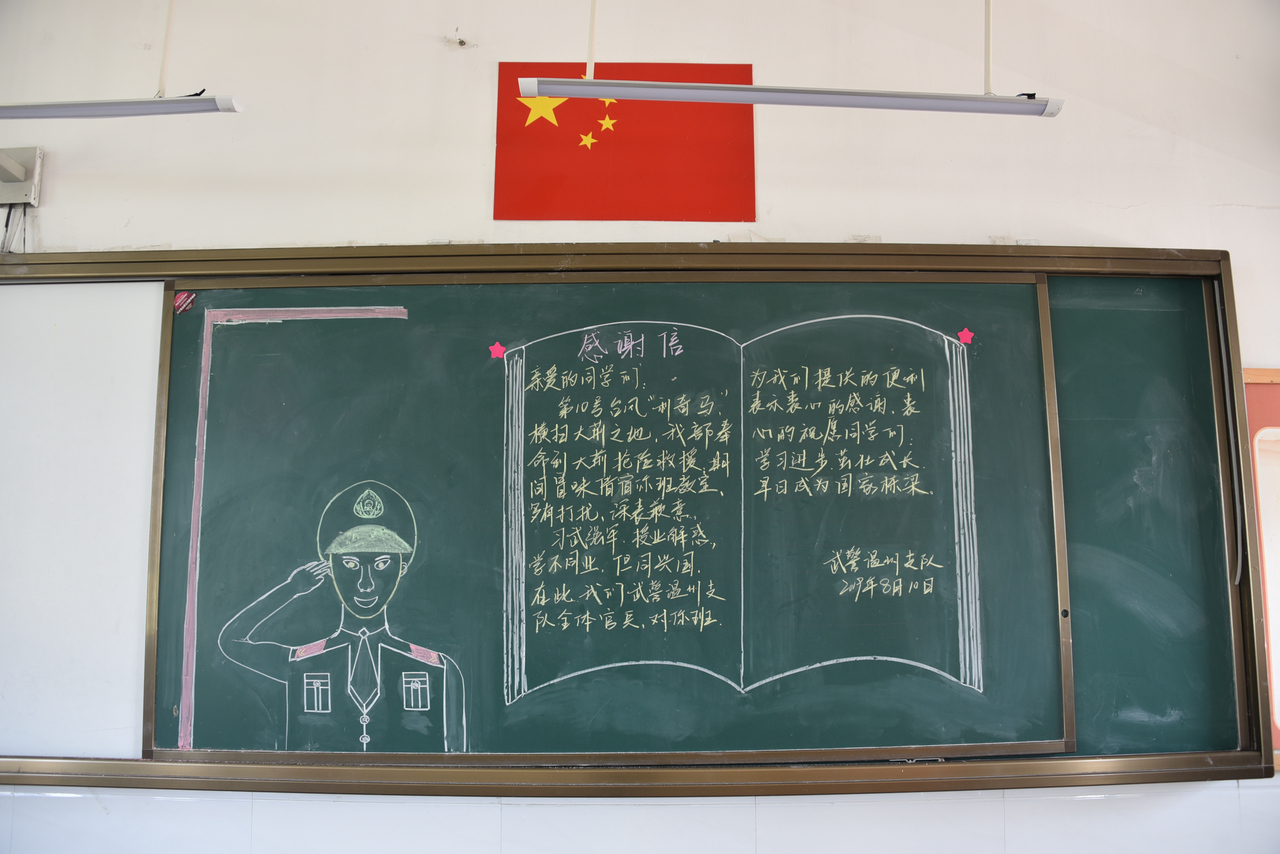 感谢信
亲爱的同学们：
第10号台风“利奇马”
横扫大荆之地，我部奉
命到大荆抢险救援，期
间冒昧借宿你班教室，
多有打扰，深表歉意。
习武强军，授业解惑，
学不同业，但同兴国。
在此，我们武警温州支
队全体官兵，对你班
为我们提供的便利
表示衷心的感谢，衷
心的祝愿同学们：
学习进步，茁壮成长，
早日成为国家栋梁。
武警温州支队
2019年8月10日